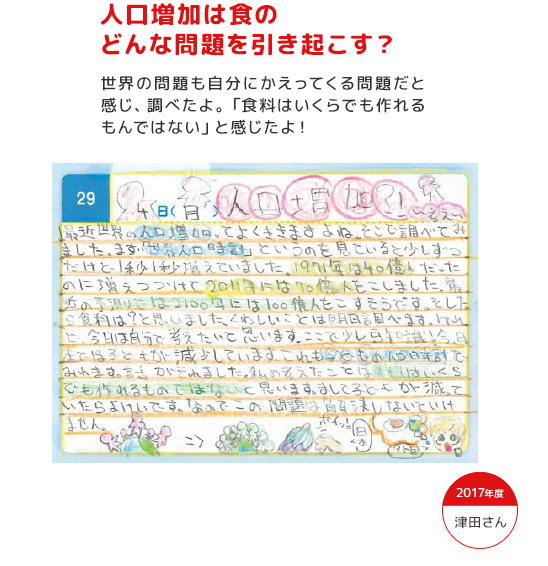 人口増加は食の
どんな問題を引き起こす？
世界の問題も自分にかえってくる問題だと
感じ、調べたよ。「食料はいくらでも作れる
もんではない」と感じたよ！
29
4(日) 人口増加?!
最近世界の人口増加ってよくききますよね。そこで調べてみ
ました。まず「世界人口時計」というのを見ていると少しずつ
だけど1秒1秒増えていました。1971年は40億人だった
のに増えつづけて2011年には70億人をこしました。最
近の予測では2100年には100億人をこすそうです。そした
ら食料は？と思いました。くわしいことは明日調べます。けれ
ど今日は自分で考えたいと思います。ここで少し豆知識
では子どもが減少しています。これも子どもの人口時計で
みれます。話がそれました。私の考えたことは食料はいくら
でも作れるものではないと思います。まして子どもが減って
いたらよけいです。なのでこの問題は解決しないといけ
ません。
=>
ポイッと
2017年度
津田さん